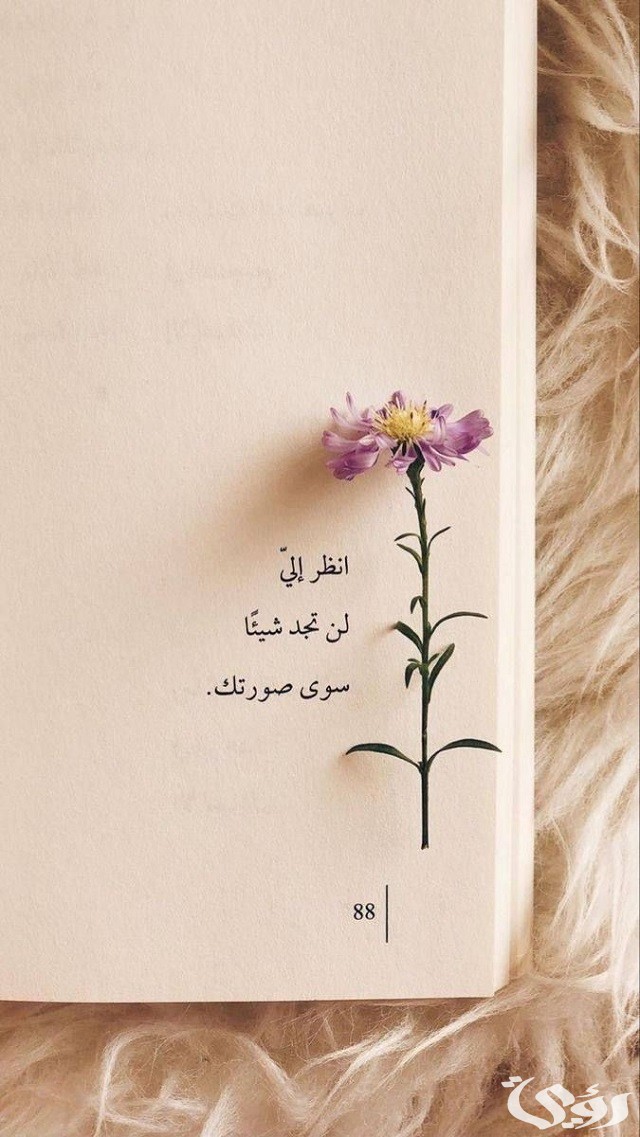 انظر إليّ
لن تجد شيئًا
سوى صورتك.
88
رؤية